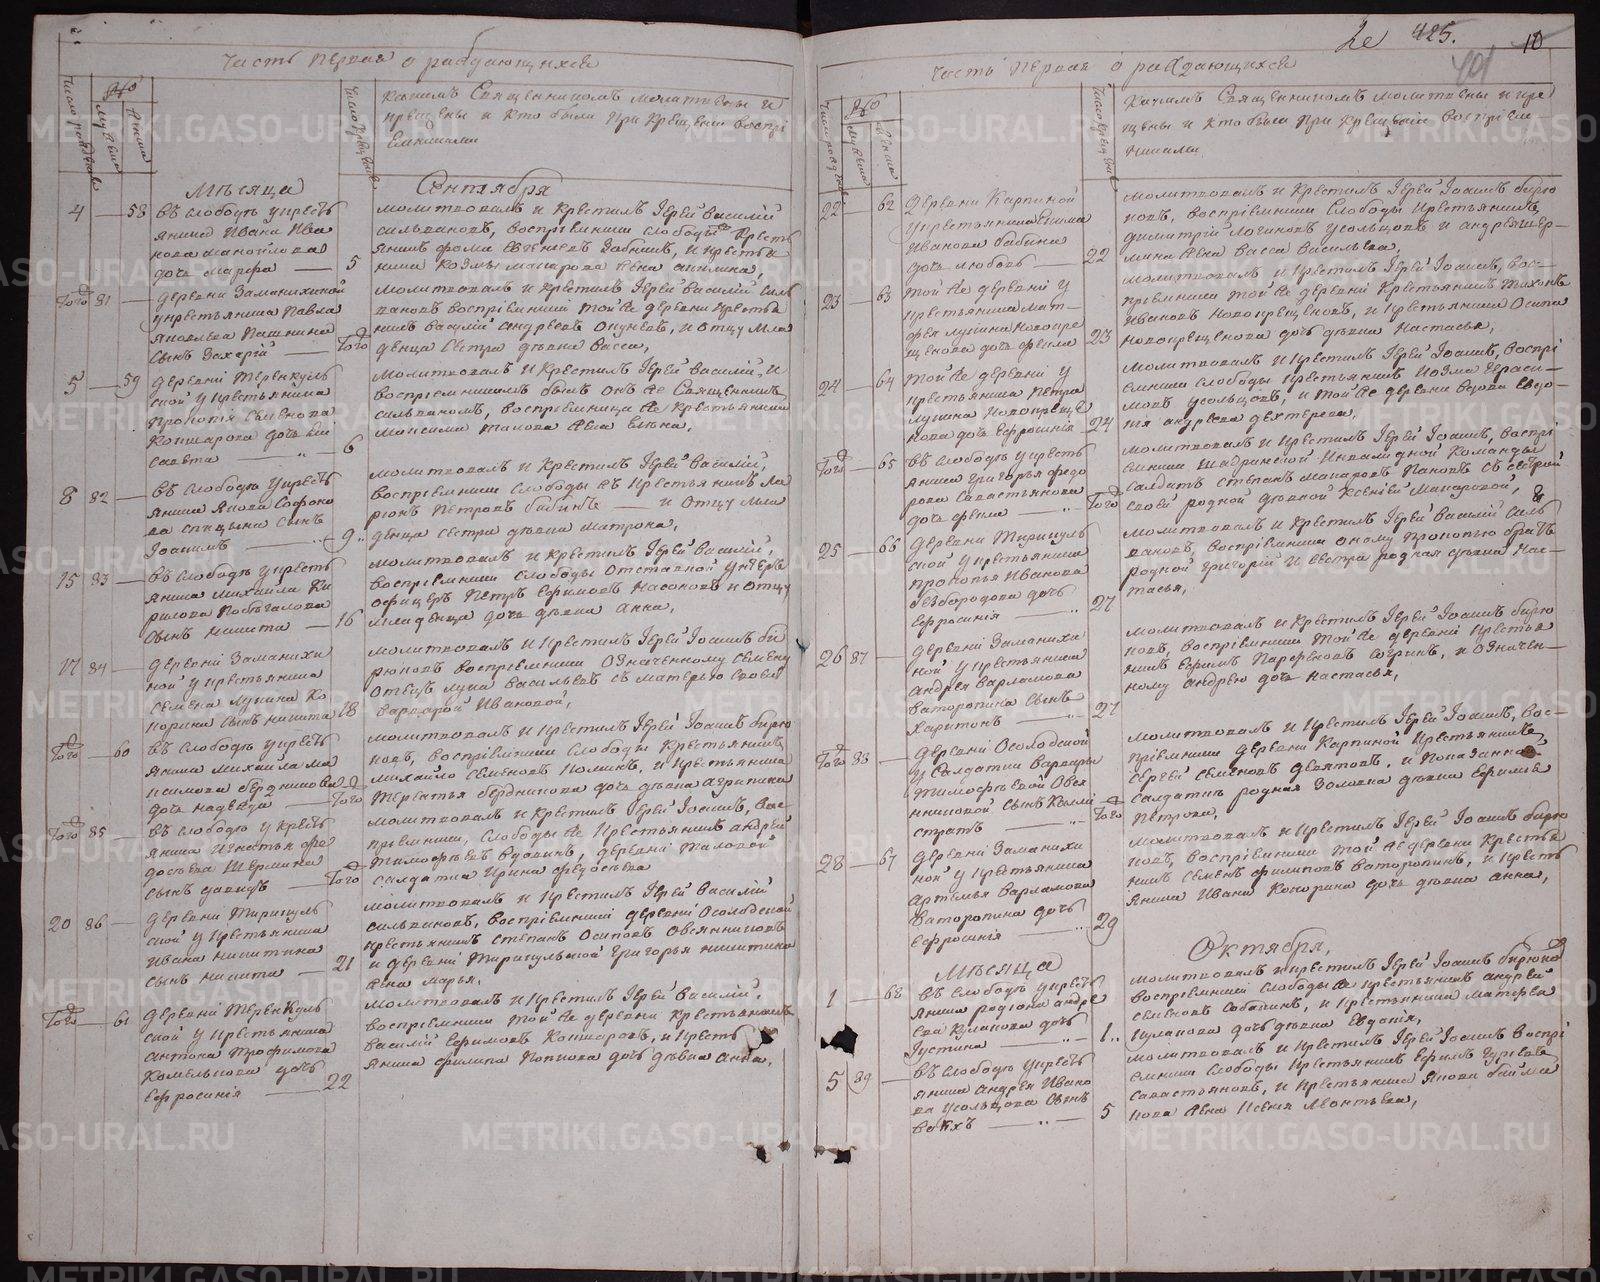 Часть первая о раждающихся
Число рожденія
№
Мужеска
Женска
Число крещенія
Какимъ Священникомъ молитвены и
крещены и кто были при крещеніи воспрі
емниками
Мѣсяца Сентября
4 — 58
въ слободѣ у кресть
янина Ивана Ива
нова
дочь Марфа — 5
молитвовалъ и крестилъ Іерей Василій
Сильвановъ, воспріемники слободы кресть
янинъ Фома
нина Козмы Макарова жена
Того 81 —
деревни Заманихиной
у крестьянина Павла
Яковлева Пашнина
сынъ Захарій — Того
молитвовалъ и крестилъ Іерей Василій Силь
вановъ воспріемники той же деревни крестья
нинъ Василій Андреевъ Окуневъ, и отцу мла
денца сестра дѣвка Васса,
5 — 59
деревни Теренкуль
ской у крестьянина
Прокопія
Кошкарова дочь Ели
савета — 6
молитвовалъ и крестилъ Іерей Василій, и
воспріемникомъ былъ онъ же Священникъ
Сильвановъ, воспріемница же крестьянина
Максима Талова жена Елена,
8 82 —
въ слободѣ у кресть
янина Якова Софоно
ва Спицына сынъ
Іоакимъ — 9
молитвовалъ и крестилъ Іерей Василій,
воспріемники слободы же крестьянинъ Ла
ріонъ Петровъ Бабинъ — и отцу мла
денца сестра дѣвка Матрона,
15 83 —
въ слободѣ у кресть
янина Михаила Ки
рилова Постѣгалова
сынъ Никита — 16
молитвовалъ и крестилъ Іерей Василій,
воспріемники слободы отставной унтеръ
офицеръ Петръ Ефимовъ Насоновъ и отцу
младенца дочь дѣвка Анна,
17 84 —
деревни Заманихи
ной у крестьянина
Семена Лукина Ко
корина сынъ Никита 18
молитвовалъ и крестилъ Іерей Іоаннъ Би
рюковъ воспріемники означенному Семену
отецъ Лука Васильевъ съ матерью своей
Варварой Ивановой,
Того — 60
въ слободѣ у кресть
янина Михайла Ма
ксимова Бердникова
дочь Надежда — Того
молитвовалъ и крестилъ Іерей Іоаннъ Бирю
ковъ, воспріемники слободы крестьянинъ
Михайло Семеновъ Поминъ, и крестьянина
Терентья Бердникова дочь дѣвка Агрипина
Того 85 —
въ слободѣ у кресть
янина Игнатья Фе
досѣева Шерпина
сынъ Давидъ — Того
молитвовалъ и крестилъ Іерей Іоаннъ, вос
пріемники, слободы же крестьянинъ Андрей
Тимофѣевъ Вдовинъ, деревни Таловой
солдатка Ирина Федосѣева
20 86 —
деревни Тирикуль
ской у крестьянина
Ивана Никитина
сынъ Никита — 21
молитвовалъ и крестилъ Іерей Василій
Сильвановъ, воспріемники деревни Осолодской
крестьянинъ Степанъ Осиповъ Овсянниковъ
и деревни Тирикульской Григорья Никитина
жена Марья,
Того — 61
деревни Теренкуль
ской у крестьянина
Антона Трофимова
Комелькова дочь
Ефросинія — 22
молитвовалъ и крестилъ Іерей Василій,
воспріемники той же деревни крестьянинъ
Василій Ефимовъ Кошкаровъ, и кресть
янина Филипа Попкова дочь дѣвка Анна,
425.
10
Часть первая о раждающихся
Число рожденія
№
Мужеска
Женска
Число крещенія
Какимъ Священникомъ молитвены и кре
щены и кто были при крещеніи воспріем
никами
22 — 62
деревни Карпиной
у крестьянина Якима
Иванова Бабина
дочь Любовь — 22
молитвовалъ и крестилъ Іерей Іоаннъ Бирю
ковъ, воспріемники слободы крестьянинъ
Димитрій Логиновъ Усольцовъ и Андрея Шер
пина жена Васса Васильева,
23 — 63
той же деревни у
крестьянина Мат
фея Лукина Новокре
щенова дочь Фекла 23
молитвовалъ и крестилъ Іерей Іоаннъ, вос
пріемники той же деревни крестьянинъ Тихонъ
Ивановъ Новокрещеновъ, и крестьянина Осипа
Новокрещенова дочь дѣвка Настасья,
24 — 64
той же деревни у
крестьянина Петра
Лукина Новокреще
нова дочь Ефросинія 24
молитвовалъ и крестилъ Іерей Іоаннъ, воспрі
емники слободы крестьянинъ Козма Гераси
мовъ Усольцовъ, и той же деревни вдова Евдо
кія Андреева Дехтерева,
Того — 65
въ слободѣ у кресть
янина Григорья Федо
рова Савастьянова
дочь Фекла — Того
молитвовалъ и крестилъ Іерей Іоаннъ, воспрі
емники Шадринской Инвалидной Команды
солдатъ Степанъ Макаровъ Пановъ съ сестрой
своей родной дѣвкой Ксеніей Макаровой,
25 — 66
деревни Тирикуль
ской у крестьянина
Прокопья Иванова
Безбородова дочь
Ефросинія — 27
молитвовалъ и крестилъ Іерей Василій Силь
вановъ, воспріемники оному Прокопью братъ
родной Григорій и сестра родная дѣвка Нас
тасья,
26 87 —
деревни Заманихи
ной у крестьянина
Андрея Варламова
Ваторопина сынъ
Харитонъ — 27
молитвовалъ и крестилъ Іерей Іоаннъ Бирю
ковъ, воспріемники той же деревни крестья
нинъ Ефимъ Парфеновъ Согринъ, и означен
ному Андрею дочь Настасья,
Того 88 —
деревни Осолодской
у солдатки Варвары
Тимофѣевой Овся
нниковой сынъ Калли
стратъ — Того
молитвовалъ и крестилъ Іерей Іоаннъ, вос
пріемники деревни Карпиной крестьянинъ
Сергѣй Семеновъ Девятовъ, и показанной
солдатки родная золовка дѣвка Ефимья
Петрова,
28 — 67
деревни Заманихи
ной у крестьянина
Артемья Варламова
Ваторопина дочь
Ефросинія — 29
молитвовалъ и крестилъ Іерей Іоаннъ Бирю
ковъ, воспріемники той же деревни крестья
нинъ Семенъ Филиповъ Ваторопинъ, и кресть
янина Ивана Кокорина дочь дѣвка Анна,
Мѣсяца Октября,
1 — 68
въ слободѣ у кресть
янина Родіона Андре
ева Кулакова дочь
Іустина — 1
молитвовалъ и крестилъ Іерей Іоаннъ Бирюковъ
воспріемники слободы же крестьянинъ Андрей
Семеновъ Собакинъ, и крестьянина Матфея
Кулакова дочь дѣвка Евдокія,
5 89 —
въ слободѣ у кресть
янина Андрея Ивано
ва Усольцова сынъ
— 5
молитвовалъ и крестилъ Іерей Іоаннъ воспрі
емники слободы крестьянинъ Ефимъ Гурьевъ
Савастьяновъ, и крестьянина Якова Байма
кова жена Ксенія Леонтьева,
METRIKI.GASO-URAL.RU